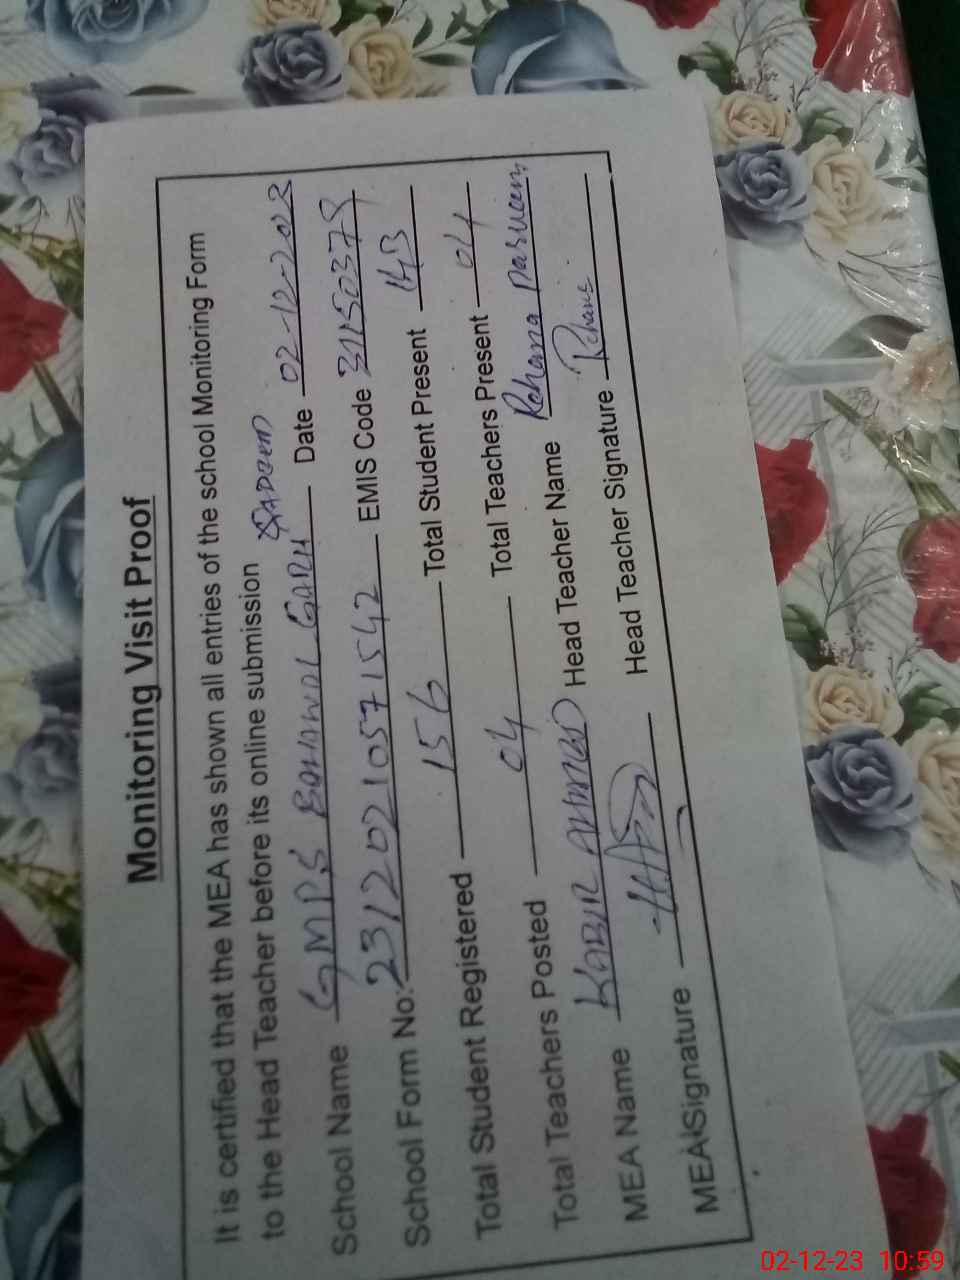 Monitoring Visit Proof
It is certified that the MEA has shown all entries of the school Monitoring Form
to the Head Teacher before its online submission
School Name GMPS BAHAWAL GARH SADEEQ Date 02-12-2023
School Form No: 23120210571542 EMIS Code 31150378
Total Student Registered 156 Total Student Present 143
Total Teachers Posted 04 Total Teachers Present 04
MEA Name KABIR AHMED Head Teacher Name Rehana
MEA Signature Head Teacher Signature Rehana
02-12-23 10:59